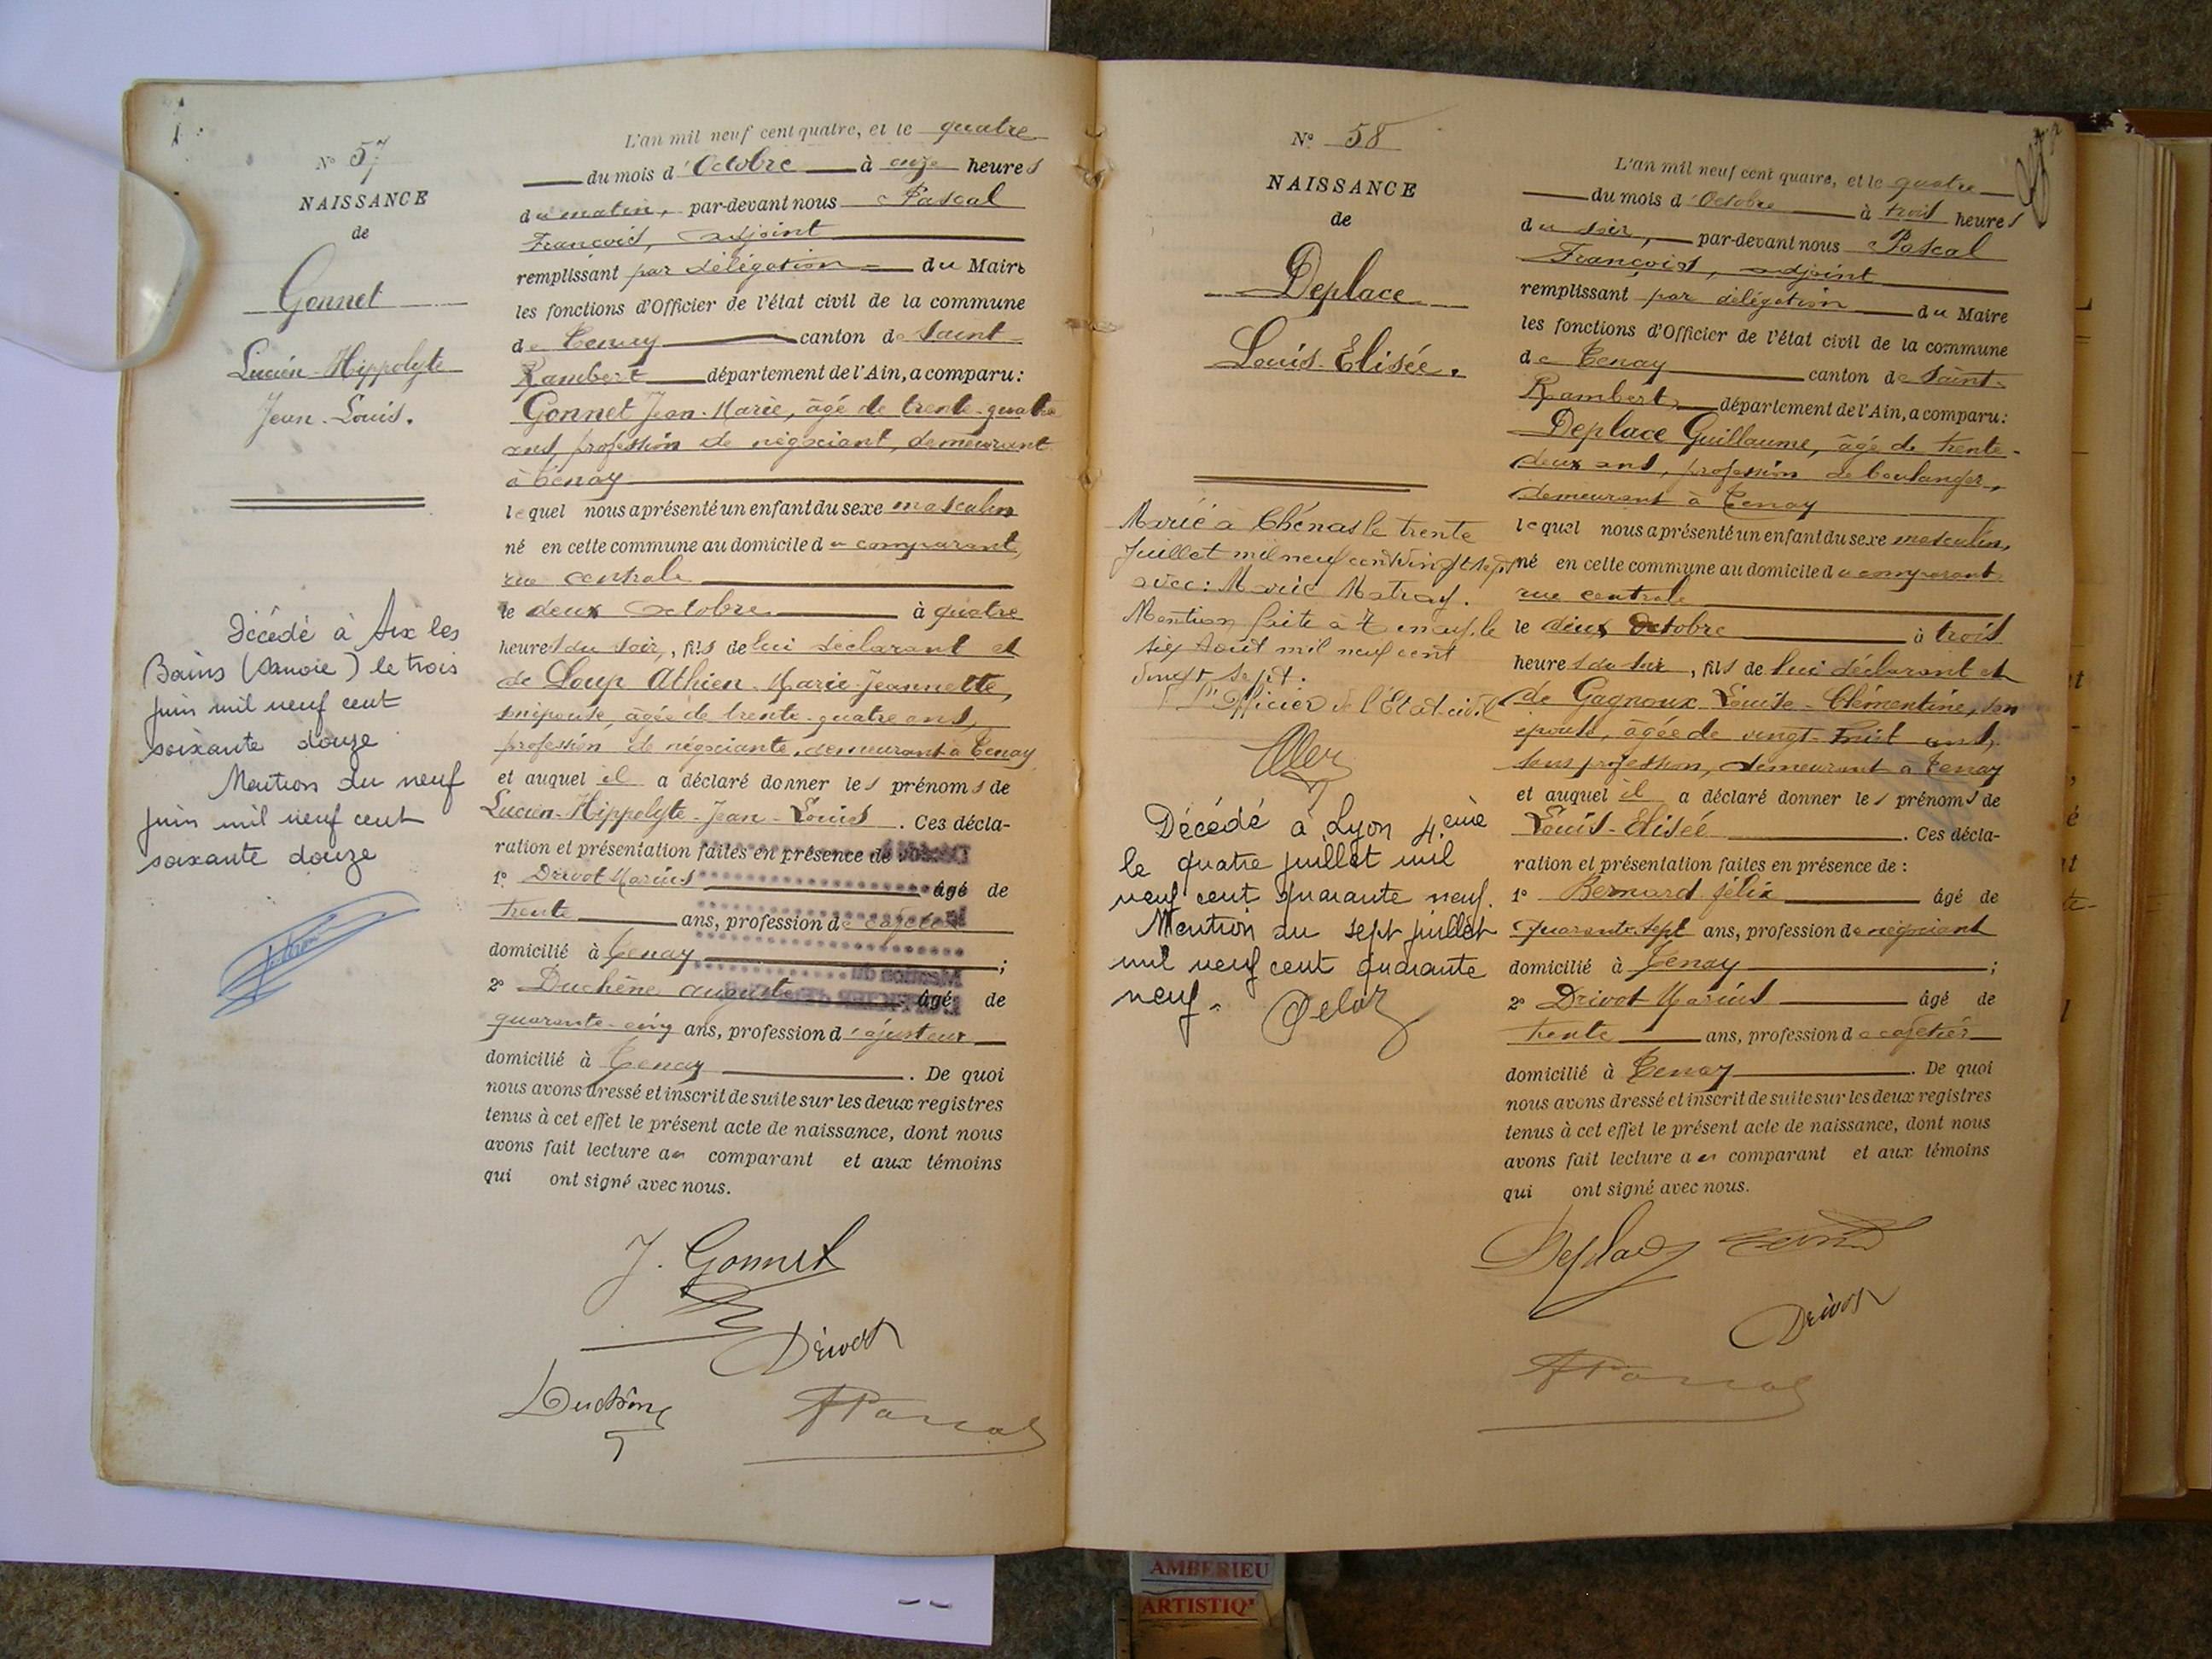 N° 57
NAISSANCE
de
Gonnet
Lucien-Hippolyte
Jean-Louis.
Décédé à Aix les
Bains (Savoie) le trois
juin mil neuf cent
soixante douze
Mention du neuf
juin mil neuf cent
soixante douze
L'an mil neuf cent quatre, et le quatre
du mois d'Octobre à onze heures
du matin, par-devant nous Pascal
François, adjoint
remplissant par délégation du Maire
les fonctions d'Officier de l'état civil de la commune
de Tenay canton de Saint-
Rambert département de l'Ain, a comparu:
Gonnet Jean-Marie, âgé de trente-quatre
ans, profession de négociant, demeurant
à Tenay
lequel nous a présenté un enfant du sexe masculin
né en cette commune au domicile du comparant,
rue centrale
le deux octobre à quatre
heures du soir, fils de lui déclarant et
de Loup Athien-Marie-Jeannette,
son épouse, âgée de trente-quatre ans,
profession de négociante, demeurant à Tenay
et auquel il a déclaré donner les prénoms de
Lucien-Hippolyte-Jean-Louis. Ces décla-
ration et présentation faites en présence de
1° Drivot Marius âgé de
trente ans, profession de cafetier
domicilié à Tenay ;
2° Duchêne auguste âgé de
quarante-cinq ans, profession d'ajusteur
domicilié à Tenay. De quoi
nous avons dressé et inscrit de suite sur les deux registres
tenus à cet effet le présent acte de naissance, dont nous
avons fait lecture au comparant et aux témoins
qui ont signé avec nous.
J. Gonnet
Drivot
Duchêne
FPascal
N° 58
NAISSANCE
de
Deplace
Louis-Elisée.
Marié à Chénas le trente
Juillet mil neuf cent vingt sept
avec: Marie Matray.
Mention faite à Tenay, le
six Août mil neuf cent
vingt sept.
L'Officier de l'Etat civil
Décédé à Lyon 4.ème
le quatre juillet mil
neuf cent quarante neuf.
Mention du sept juillet
mil neuf cent quarante
neuf.
L'an mil neuf cent quatre, et le quatre
du mois d'Octobre à trois heures
du soir, par-devant nous Pascal
François, adjoint
remplissant par délégation du Maire
les fonctions d'Officier de l'état civil de la commune
de Tenay canton de Saint-
Rambert département de l'Ain, a comparu:
Deplace Guillaume, âgé de trente-
deux ans, profession de boulanger,
demeurant à Tenay
lequel nous a présenté un enfant du sexe masculin,
né en cette commune au domicile du comparant
rue centrale
le deux Octobre à trois
heures du soir, fils de lui déclarant et
de Gagnoux Louise-Clémentine, son
épouse, âgée de vingt-huit ans,
sans profession, demeurant à Tenay
et auquel il a déclaré donner les prénoms de
Louis-Elisée. Ces décla-
ration et présentation faites en présence de :
1° Bernard félix âgé de
quarante-sept ans, profession de négociant
domicilié à Tenay ;
2° Drivot Marius âgé de
trente ans, profession de cafetier
domicilié à Tenay. De quoi
nous avons dressé et inscrit de suite sur les deux registres
tenus à cet effet le présent acte de naissance, dont nous
avons fait lecture au comparant et aux témoins
qui ont signé avec nous.
Deplace
Drivot
FPascal
AMBERIEU
ARTISTIQ